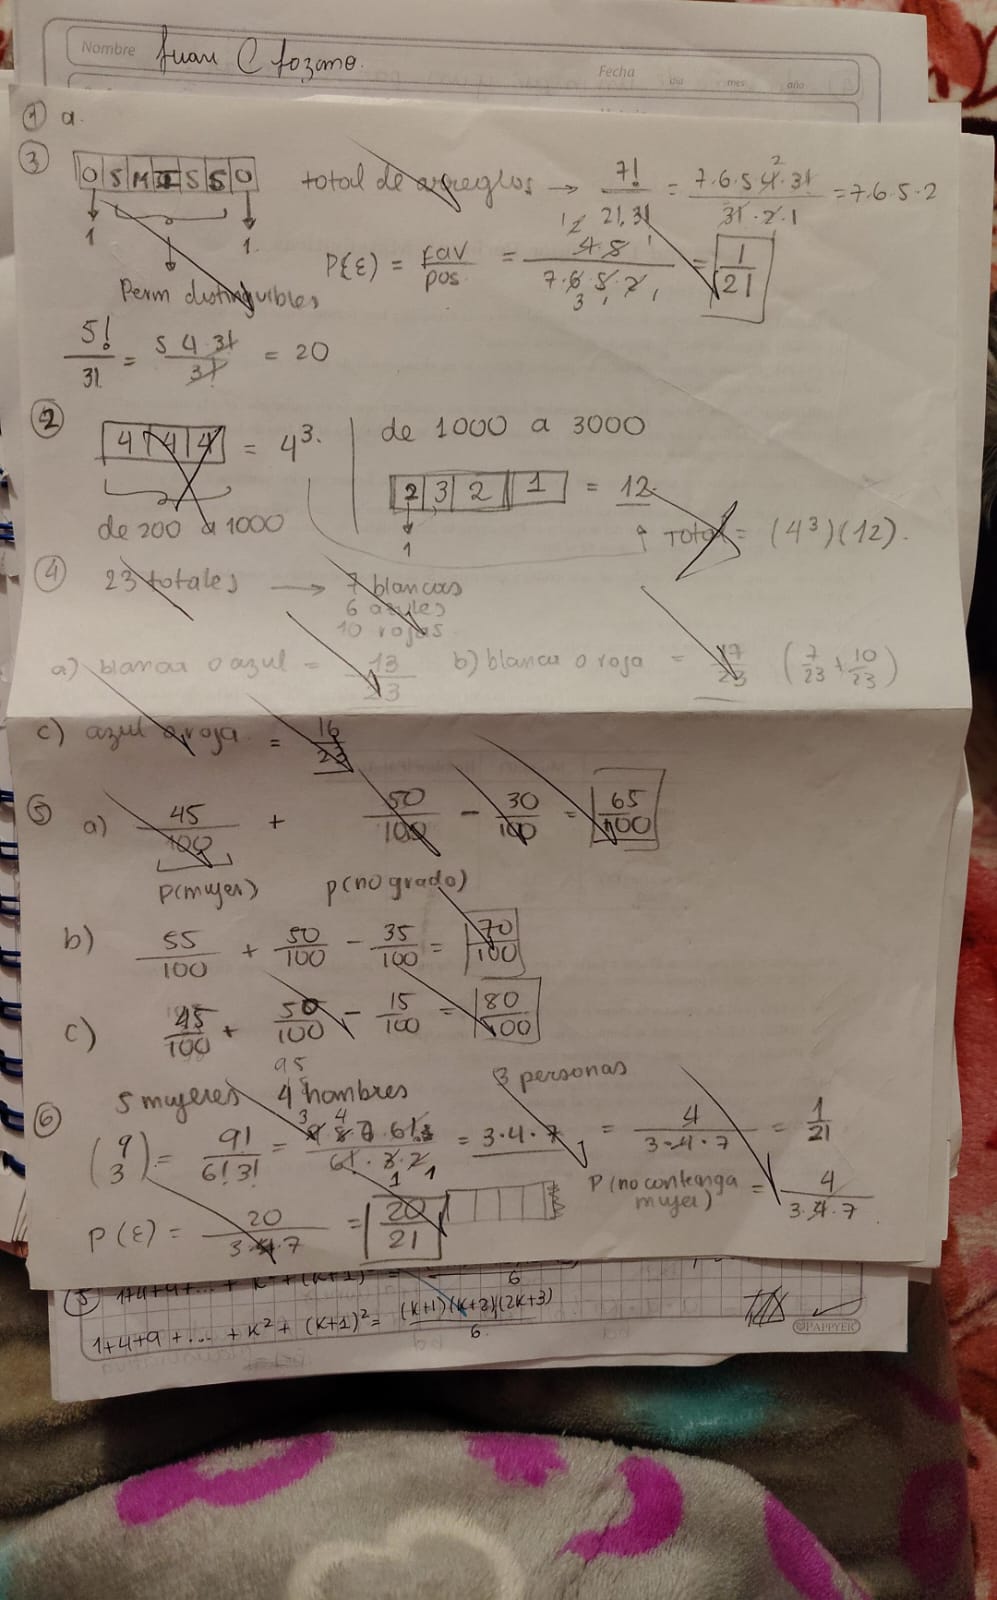 Nombre Juan C Lozano.
Fecha
dia mes año
① a.
③ |O|S|M|I|S|S|O| total de arreglos → 7!/2!.3! = 7.6.5 4.3!/3!.2.1 = 7.6.5.2
1 1.
Perm distinguibles
P(ε) = fav/pos = 4.5/7.6.5.2 = 1/21
5!/3! = 5 4 3!/3! = 20
② |4|4|4| = 4³.
de 200 a 1000
de 1000 a 3000
|2|3|2|1| = 12
1
Total = (4³)(12).
④ 23 totales → 7 blancas
6 azules
10 rojas
a) blanca o azul = 13/23 b) blanca o roja = 17/23 (7/23 + 10/23)
c) azul o roja = 16/23
⑤ a) 45/100 + 50/100 − 30/100 = 65/100
P(mujer) P(no grado)
b) 55/100 + 50/100 − 35/100 = 70/100
c) 45/100 + 50/100 − 15/100 = 80/100
95
⑥ 5 mujeres 4 hombres 3 personas
(9 3) = 9!/6!3! = 9 8 7 6!/6!.3.2 = 3.4.7 = 4/3.4.7 = 1/21
P(no contenga mujer) = 4/3.4.7
P(ε) = 20/3.4.7 = 20/21
6
1+4+9+... + K² + (K+1)² = (K+1)(K+2)(2K+3)/6
PAPPYER